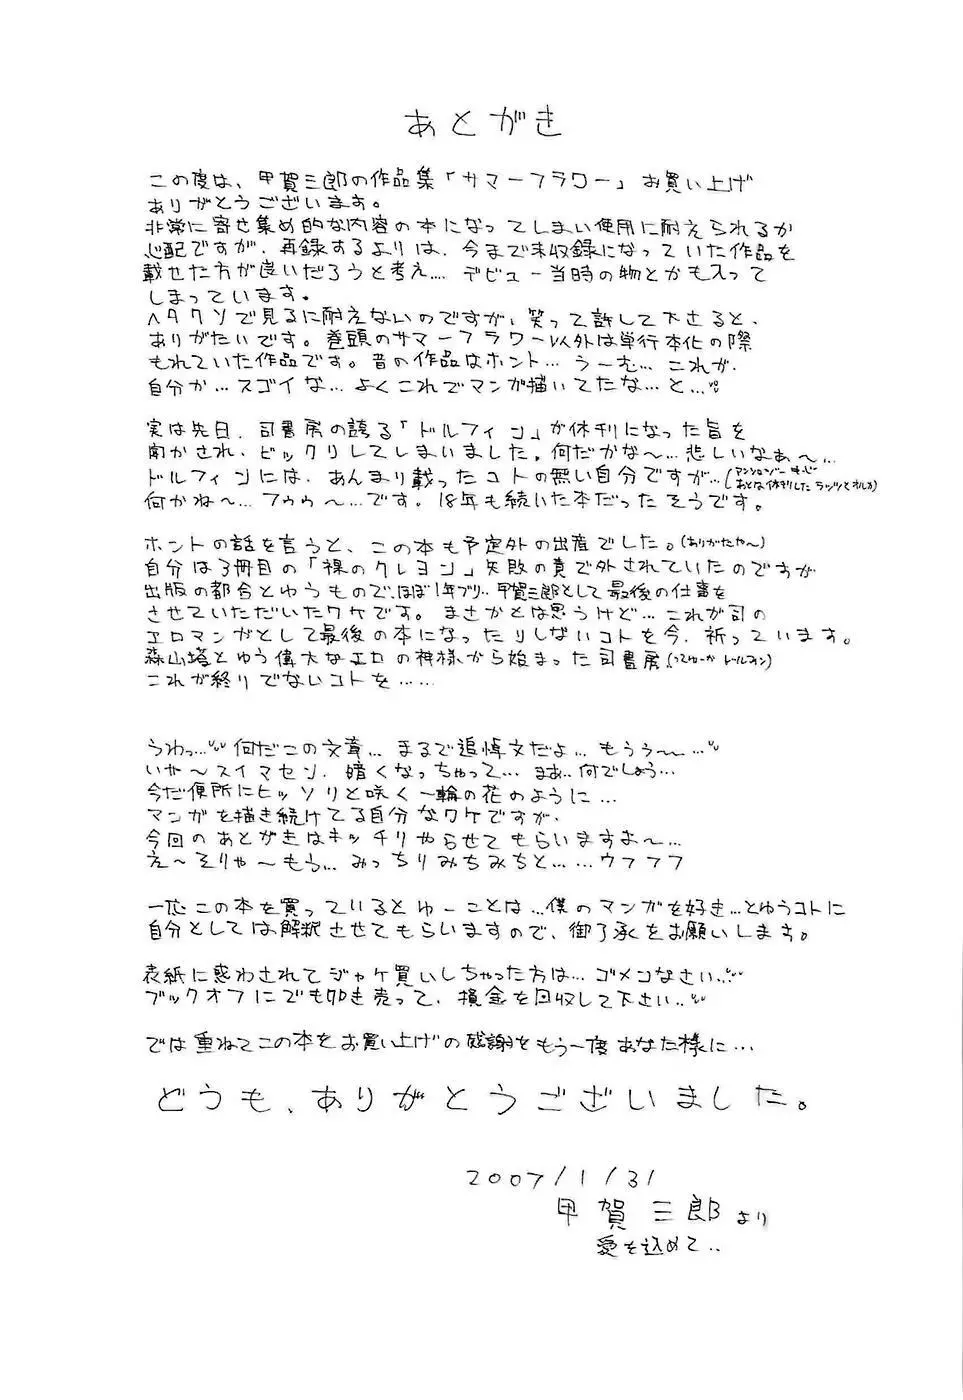 あとがき
この度は、甲賀三郎の作品集「サマーフラワー」お買い上げ
ありがとうございます。
非常に寄せ集め的な内容の本になってしまい使用に耐えられるか
心配ですが、再録するよりは、今まで未収録になっていた作品を
載せた方が良いだろうと考え…. デビュー当時の物とかも入って
しまっています。
ヘタクソで見るに耐えないのですが、笑って許して下さると、
ありがたいです。巻頭のサマーフラワー以外は単行本化の際
もれていた作品です。昔の作品はホント… うーむ… これが、
自分か…スゴイな… よくこれでマンガ描いてたな…と…
実は先日、司書房の誇る「ドルフィン」が休刊になった旨を
聞かされ、ビックリしてしまいました。何だかな〜… 悲しいなぁ〜…
ドルフィンには、あんまり載ったコトの無い自分ですが…(アンソロジー
あとは休刊したラッツとオルカ)
何かね〜… フゥゥ〜…です。18年も続いた本だったそうです。
ホントの話を言うと、この本も予定外の出産でした。(ありがたや〜)
自分は3冊目の「裸のクレヨン」失敗の責で外されていたのですが
出版の都合とゆうもので、ほぼ1年ブリ.. 甲賀三郎として最後の仕事を
させていただいたワケです。まさかとは思うけど… これが司の
エロマンガとして最後の本になったりしないコトを今、祈っています。
森山塔とゆう偉大なエロの神様から始まった司書房(ってゆーか ドルフィン)
これが終りでないコトを……
うわっ… 何だこの文章… まるで追悼文だよ… もうぅ〜…
いや〜スイマセン、暗くなっちゃって… まぁ.. 何でしょう…
今だ便所にヒッソリと咲く一輪の花のように…
マンガを描き続けてる自分なワケですが、
今回のあとがきはキッチリやらせてもらいますよ〜…
え〜そりゃ〜もう… みっちりみちみちと……ウフフフ
一応この本を買っているとゆーことは…僕のマンガを好き…とゆうコトに
自分としては解釈させてもらいますので、御了承をお願いします。
表紙に惑わされてジャケ買いしちゃった方は… ゴメンなさい…
ブックオフにでも叩き売って、損金を回収して下さい..
では重ねてこの本をお買い上げの感謝をもう一度あなた様に…
どうも、ありがとうございました。
2007/1/31
甲賀三郎より
愛を込めて..